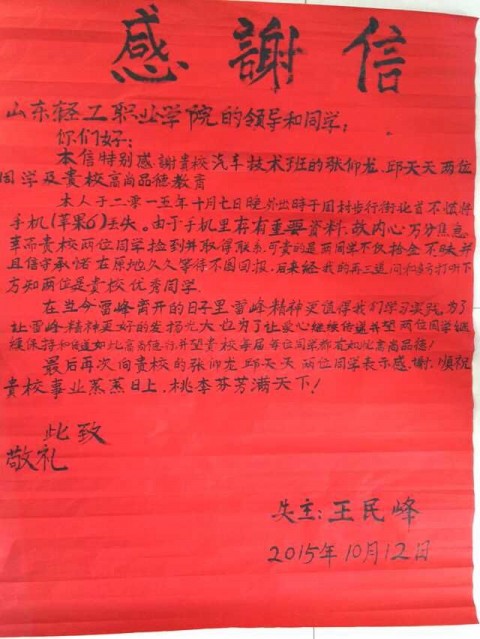 感謝信
山东轻工职业学院的领导和同学:
你们好:
本信特别感謝貴校汽车技术班的张仰龙、邱天天两位
同学及贵校高尚品德教育
本人于二零一五年十月七日晚外出時于周村步行街北首不慎将
手机(苹果6)丢失。由于手机里存有重要資料,故内心万分焦急
幸而贵校两位同学捡到并取得联系,可贵的是两同学不仅拾金不昧并
且信守承诺在原地久久等待不图回报,后来经我的再三追问和多方打听下
方知两位是贵校优秀同学。
在当今雷峰离开的日子里雷峰精神更值得我们学习实践,为了
让雷峰精神更好的发扬光大也为了让爱心继续传递并望两位同学继
续保持和促进如此高尚德行并望贵校每届每位同学都有如此高尚品德!
最后再次向贵校的张仰龙、邱天天两位同学表示感謝.順祝
贵校事业蒸蒸日上.桃李芬芳满天下!
此致
敬礼
失主:王民峰
2015年10月12日